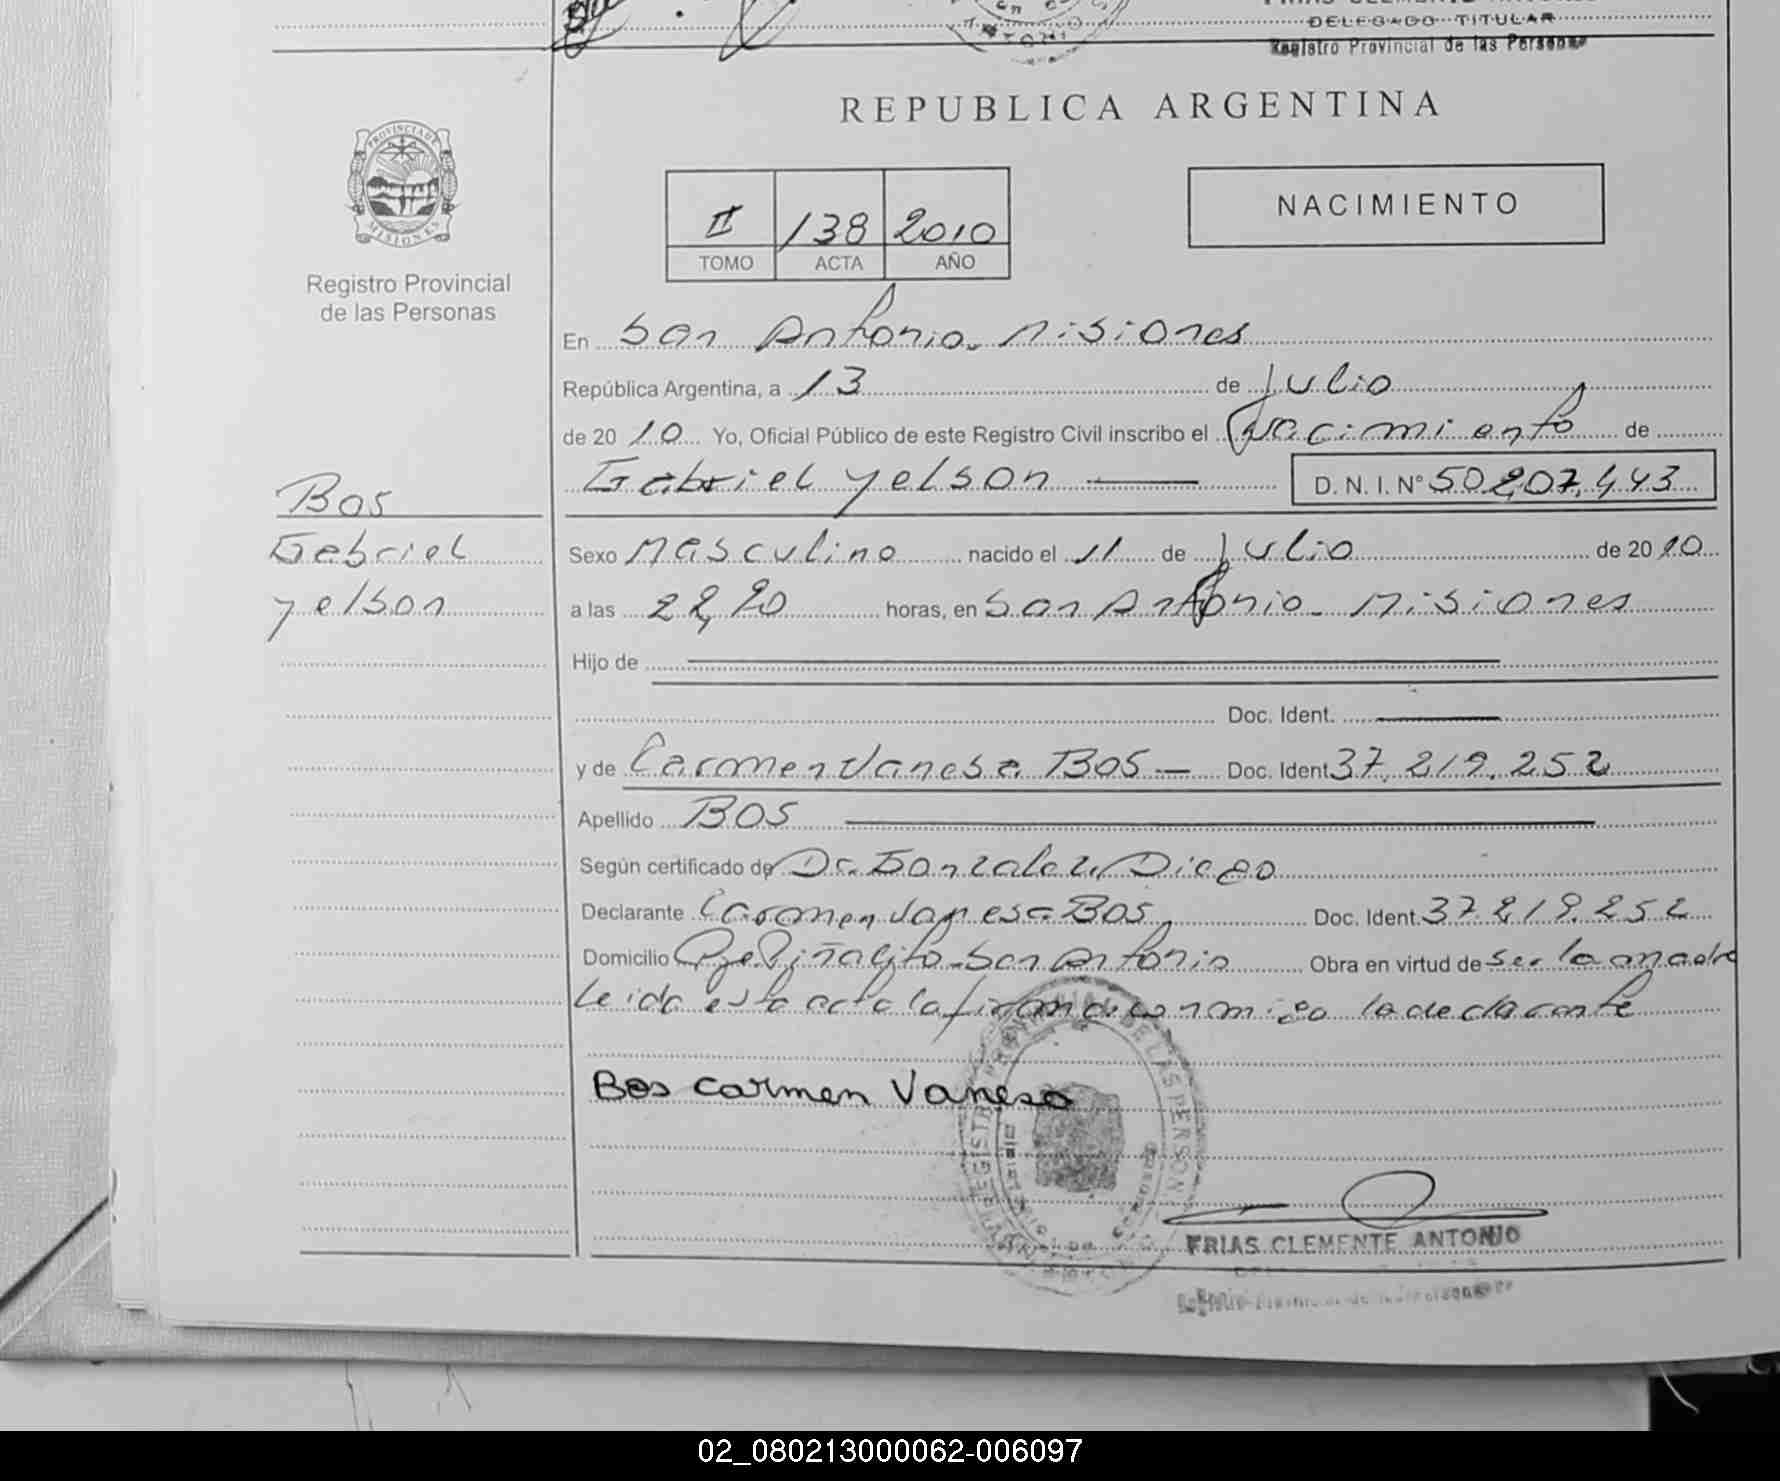 FRIAS CLEMENTE ANTONIO
DELEGADO TITULAR
Registro Provincial de las Personas
REPUBLICA ARGENTINA
PROVINCIA DE
MISIONES
Registro Provincial
de las Personas
II 138 2010
TOMO ACTA AÑO
NACIMIENTO
En San Antonio. Misiones
República Argentina, a 13 de Julio
de 2010 Yo, Oficial Público de este Registro Civil inscribo el Nacimiento de
Gabriel yelson D. N. I. N° 50.207.443
Bos
Gabriel
yelson
Sexo Masculino nacido el 11 de Julio de 2010
a las horas, en San Antonio - Misiones
Hijo de
Doc. Ident.
y de Carmen Vanesa Bos Doc. Ident 37.219.252
Apellido BOS
Según certificado de Dr. Gonzalez Diego
Declarante Carmen Vanesa Bos Doc. Ident. 37.219.252
Domicilio Pje Piñalito - San Antonio Obra en virtud de ser la madre
Leida esta acta la firma conmigo la declarante
Bos carmen Vanesa
FRIAS CLEMENTE ANTONIO
02_080213000062-006097